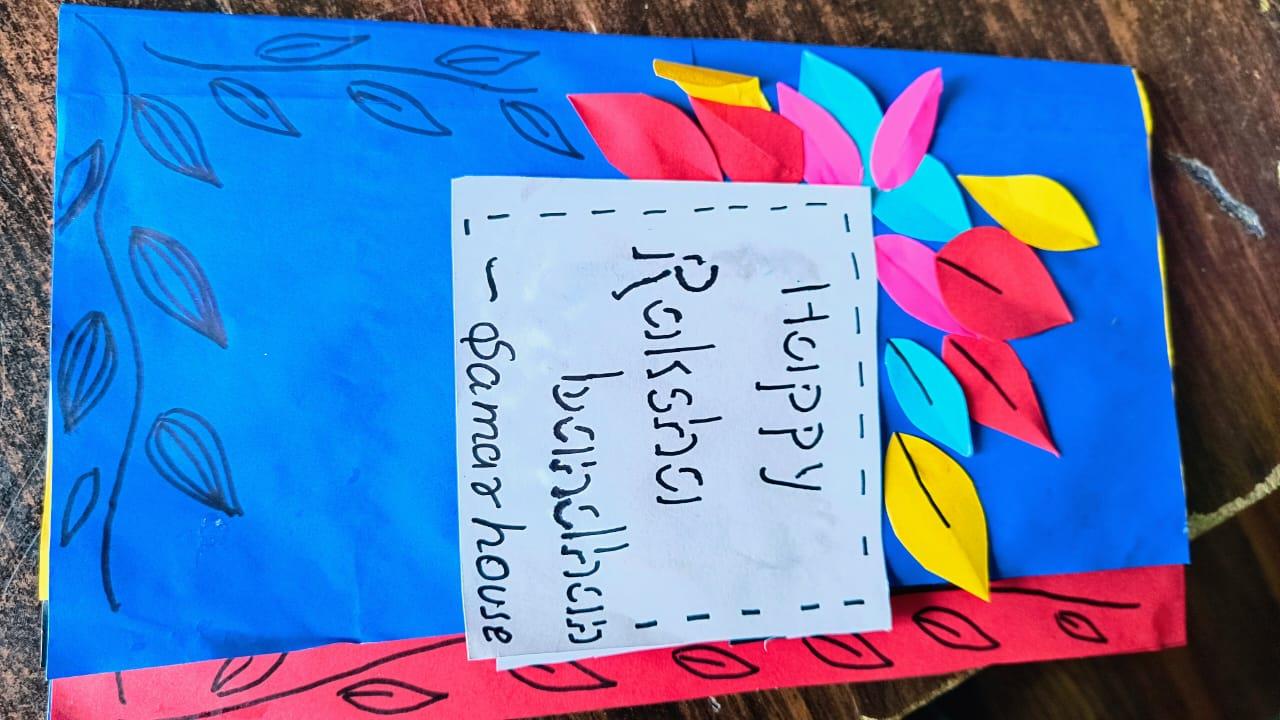 Happy
Raksha
bandhan
- house